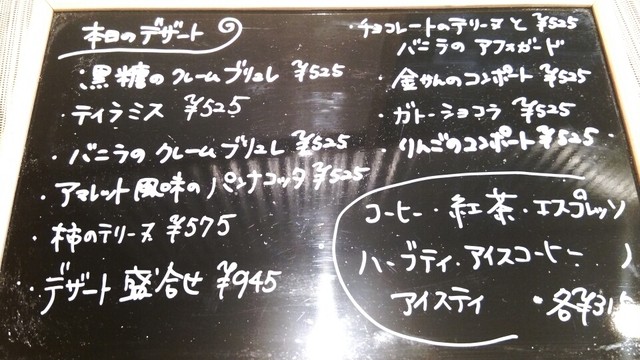 本日のデザート
黒糖のクレームブリュレ ¥525
・ティラミス ¥525
・バニラのクレームブリュレ ¥525
・アマレット風味のパンナコッタ ¥525
・柿のテリーヌ ¥575
・デザート盛合せ ¥945
・チョコレートのテリーヌと ¥525
バニラのアフォガード
・金かんのコンポート ¥525
・ガトーショコラ ¥525
・りんごのコンポート ¥525
コーヒー・紅茶・エスプレッソ
ハーブティ・アイスコーヒー
アイスティ ・各¥315